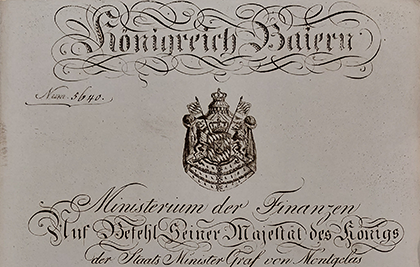 Königreich Baiern
Num. 5640.
Ministerium der Finanzen
Auf Befehl Seiner Majestät des Königs
der Staats Minister Graf von Montgelas